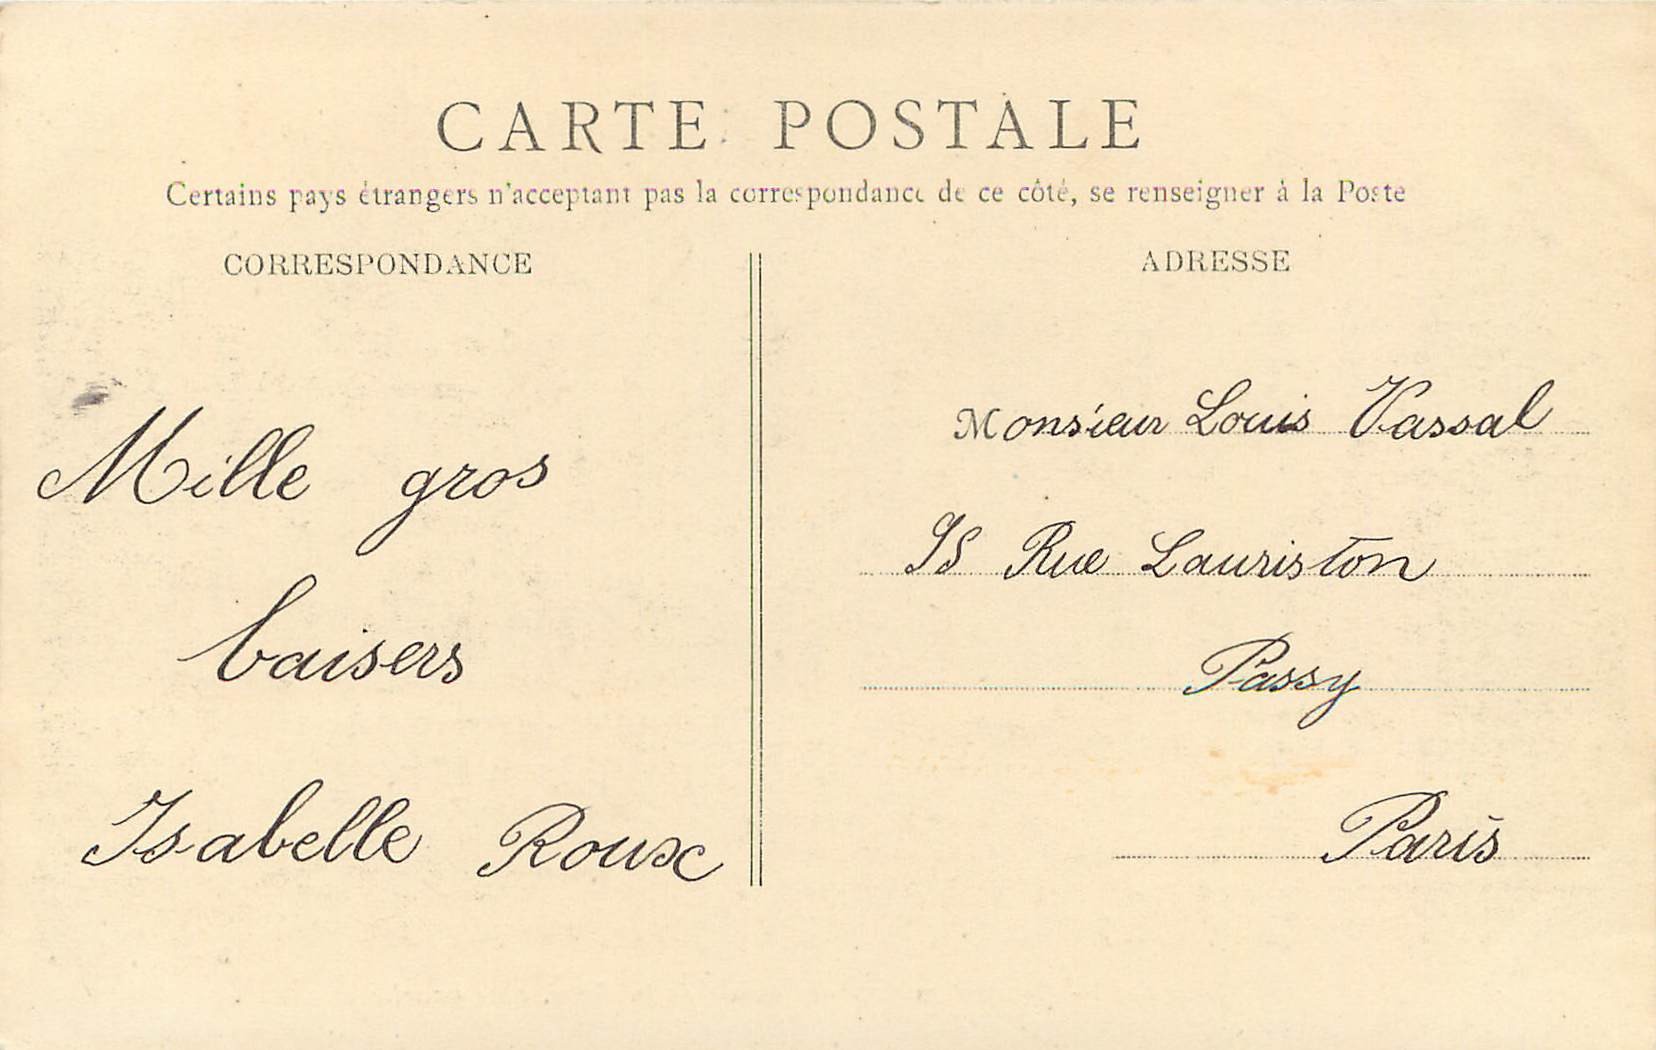 CARTE POSTALE
Certains pays étrangers n'acceptant pas la correspondance de ce côté, se renseigner à la Poste
CORRESPONDANCE
Mille gros
baisers
Isabelle Roux
ADRESSE
Monsieur Louis Vassal
Rue Lauriston
Passy
Paris